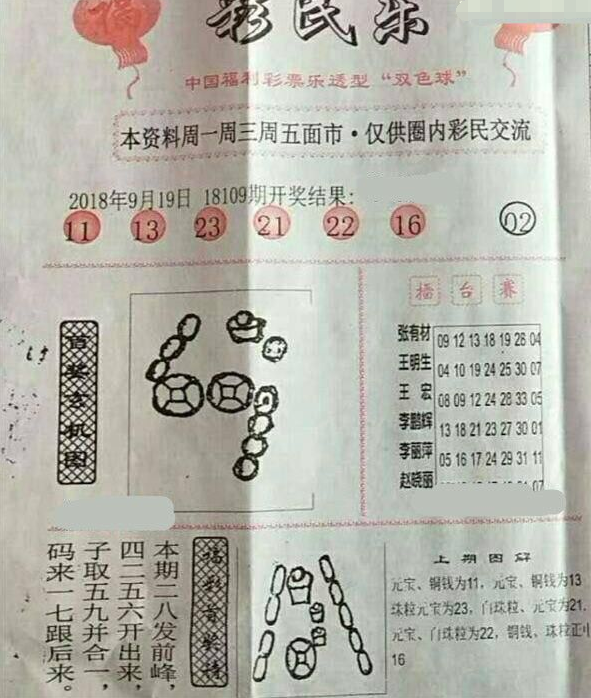 彩民乐
中国福利彩票乐透型“双色球”
本资料周一周三周五面市·仅供圈内彩民交流
2018年9月19日 18109期开奖结果:
11 13 23 21 22 16 02
擂台赛
张有材 09 12 13 18 19 26 04
王明生 04 10 19 24 25 30 07
王宏 08 09 12 24 28 33 05
李鹏辉 13 18 21 23 27 30 01
李丽萍 05 16 17 24 29 31 11
赵晓丽
首奖玄机图
福彩首奖诗
本期二八发前峰,
四二五六开出来,
子取五九并合一,
码来一七跟后来。
上期图解
元宝、铜钱为11, 元宝、铜钱为13
珠粒元宝为23, 白珠粒、元宝为21,
元宝、白珠粒为22, 铜钱、珠粒正中
16